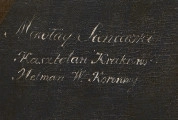 Mikołay Sieniawski
Kasztelan Krakows:
Hetman W. Koronny